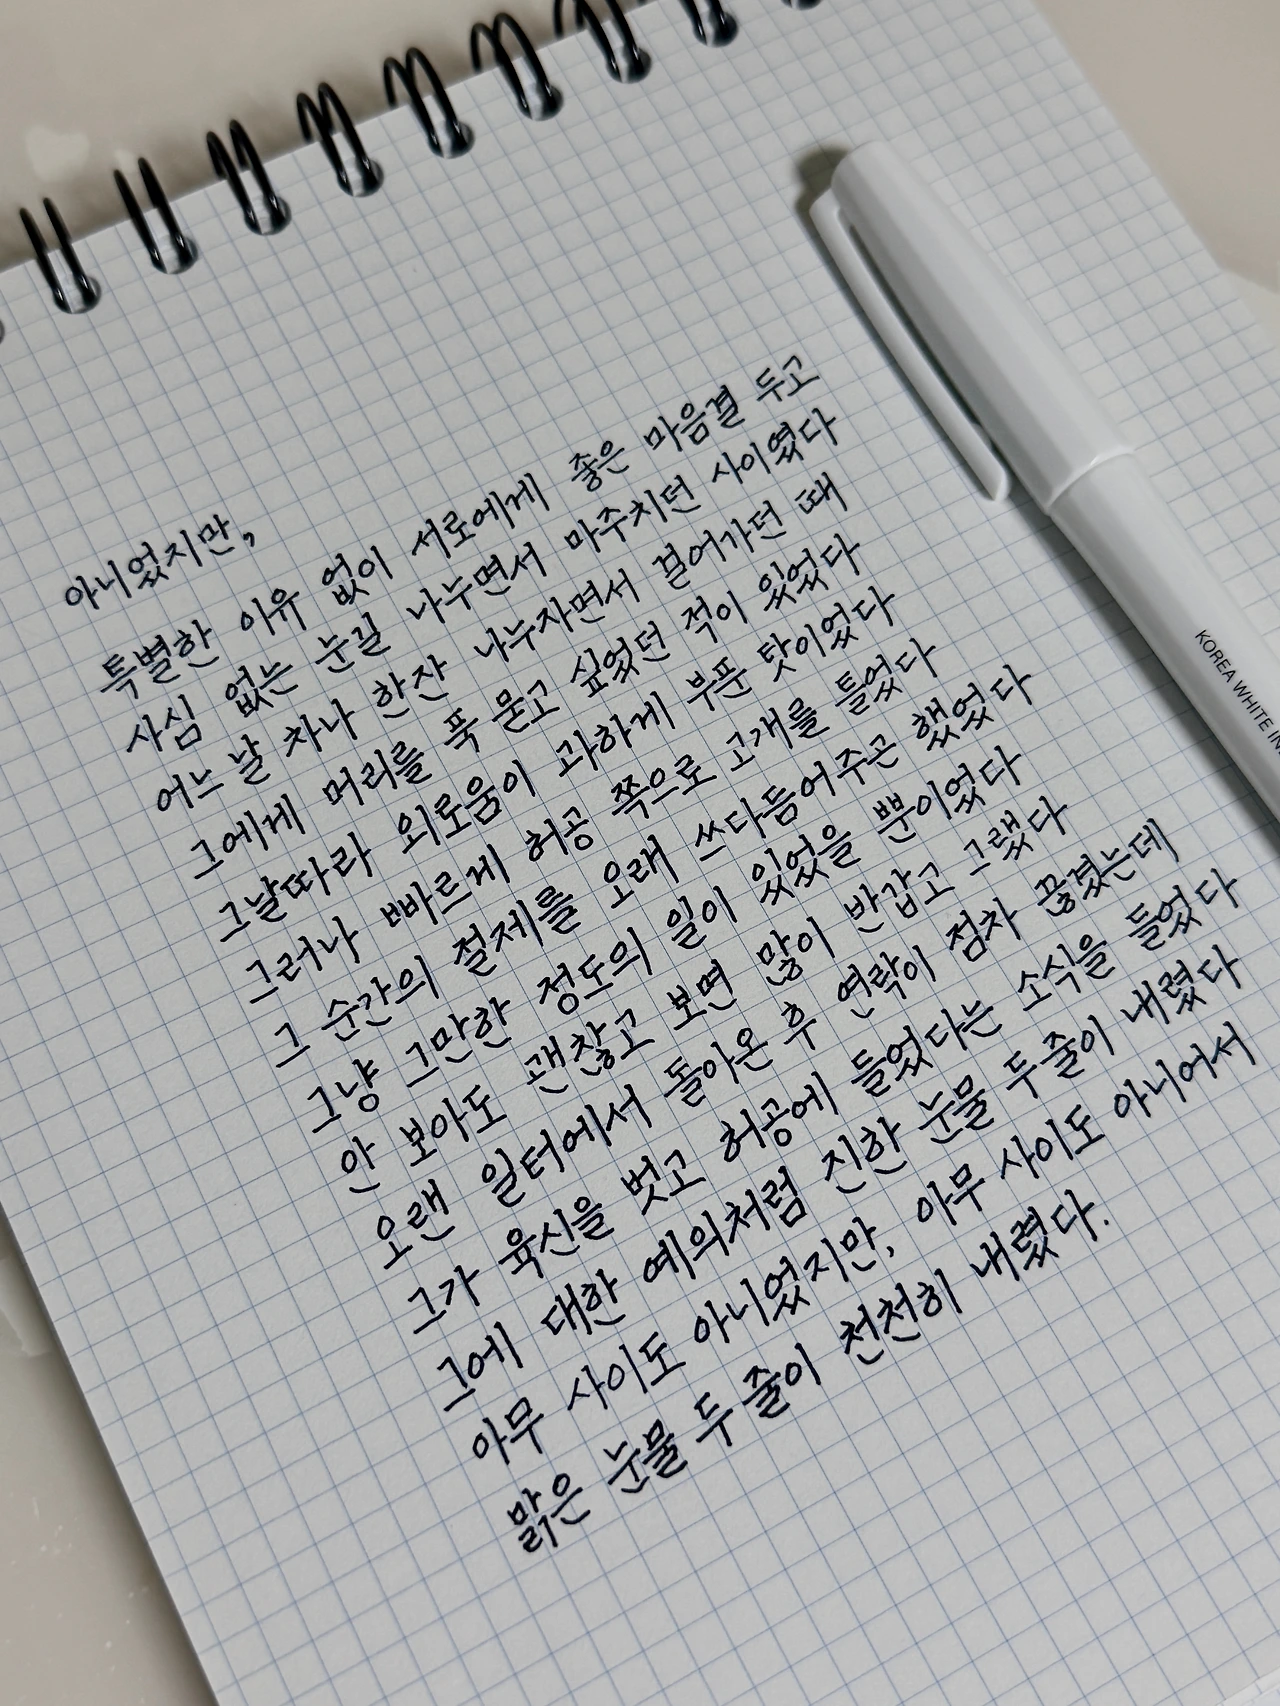 아니었지만,
특별한 이유 없이 서로에게 좋은 마음결 두고
사심 없는 눈길 나누면서 마주치던 사이였다
어느 날 차나 한잔 나누자면서 걸어가던 때
그에게 머리를 푹 묻고 싶었던 적이 있었다
그날따라 외로움이 과하게 부푼 탓이었다
그러나 빠르게 허공 쪽으로 고개를 틀었다
그 순간의 절제를 오래 쓰다듬어주곤 했었다
그냥 그만한 정도의 일이 있었을 뿐이었다
안 보아도 괜찮고 보면 많이 반갑고 그랬다
오랜 일터에서 돌아온 후 연락이 점차 끊겼는데
그가 육신을 벗고 허공에 들었다는 소식을 들었다
그에 대한 예의처럼 진한 눈물 두 줄이 내렸다
아무 사이도 아니었지만, 아무 사이도 아니어서
맑은 눈물 두 줄이 천천히 내렸다.
KOREA WHITE IN